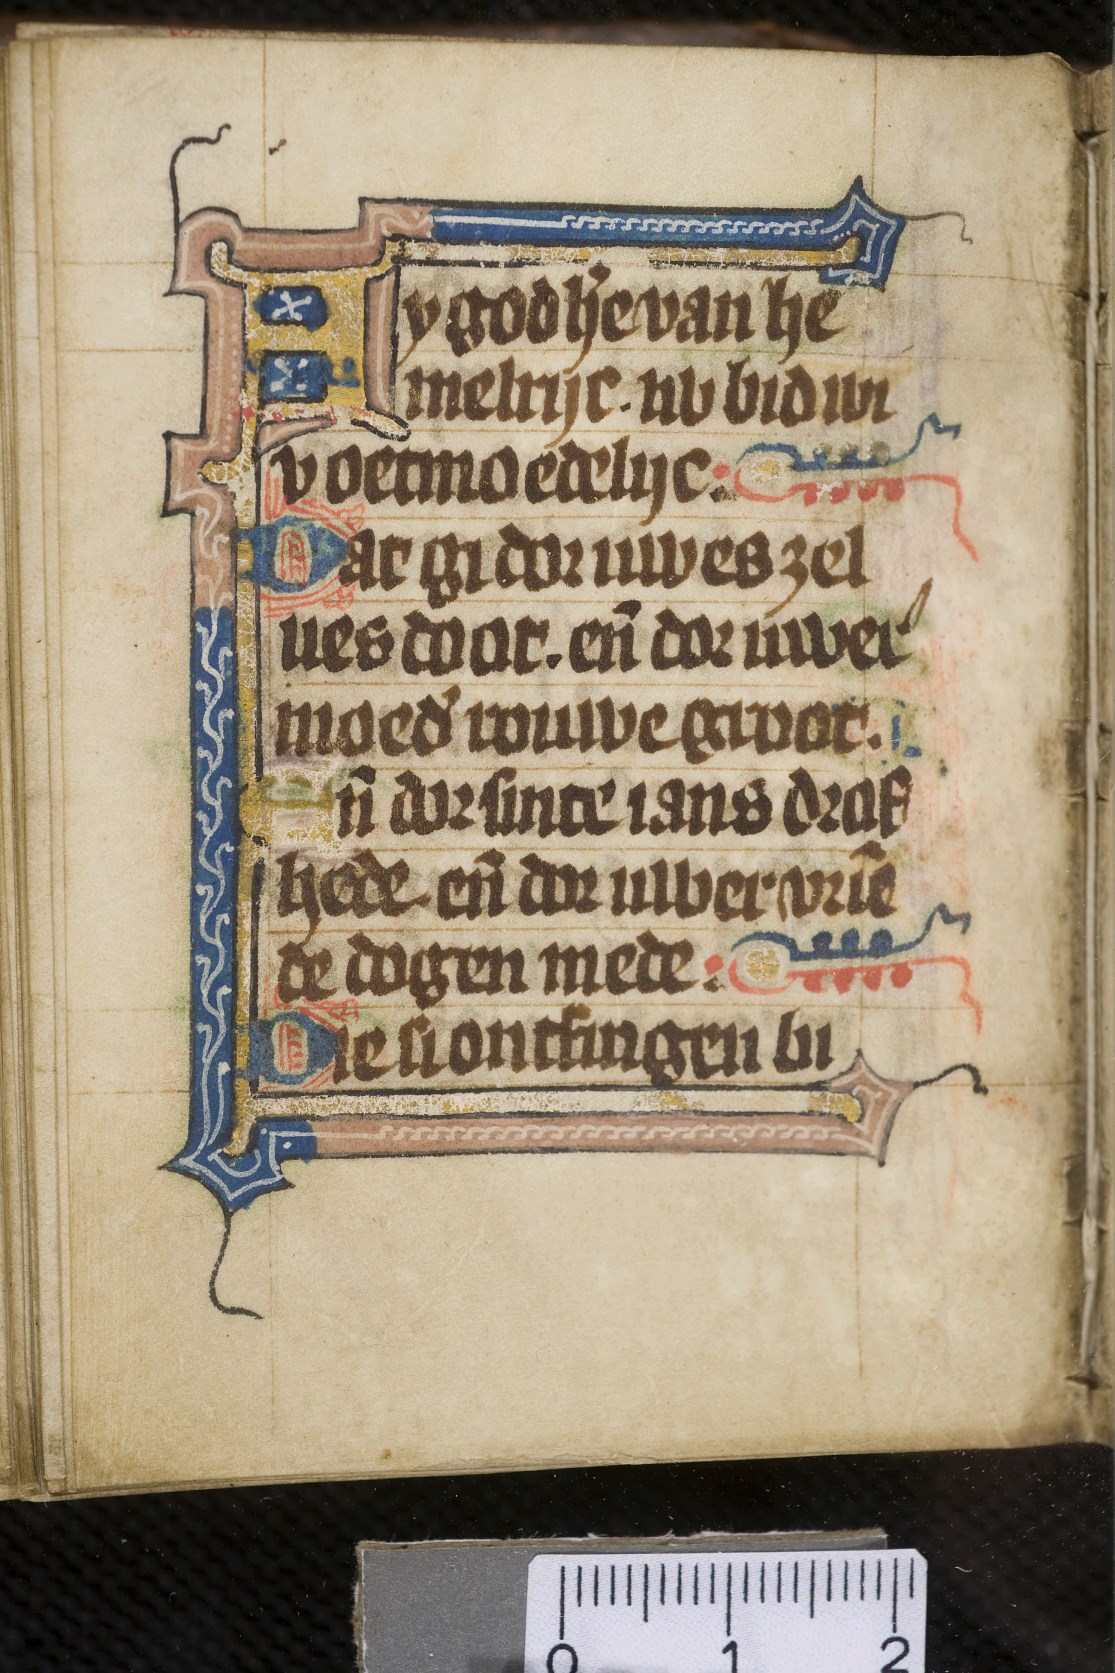 Ay god h̄e van he
melrijc. nv bid wi
v oetmoedelijc.
Dat gi dor uwes zel
ues doot. en̄ dor uwer
moed' rouwe groot.
En̄ dor sinte ians droef
hede. en̄ dor uwer vrīe
de dogen mede.
Die si ontfingen bi
0 1 2